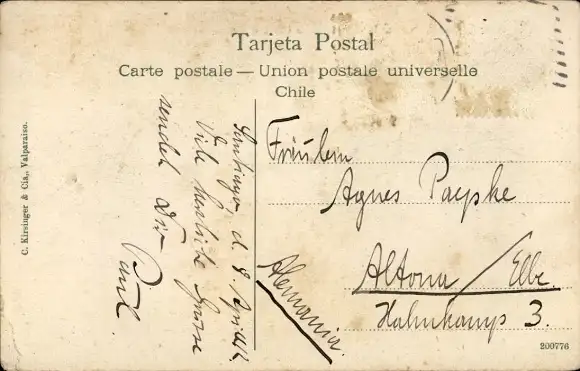 Tarjeta Postal
Carte postale — Union postale universelle
Chile
C. Kirsinger & Cia., Valparaiso.
Santiago, d. 8 April
Viele herzliche Grüsse
sendet Dir
Paul.
Fräulein
Agnes Papke
Altona / Elbe.
Hahnkamp 3.
Alemania.
200776